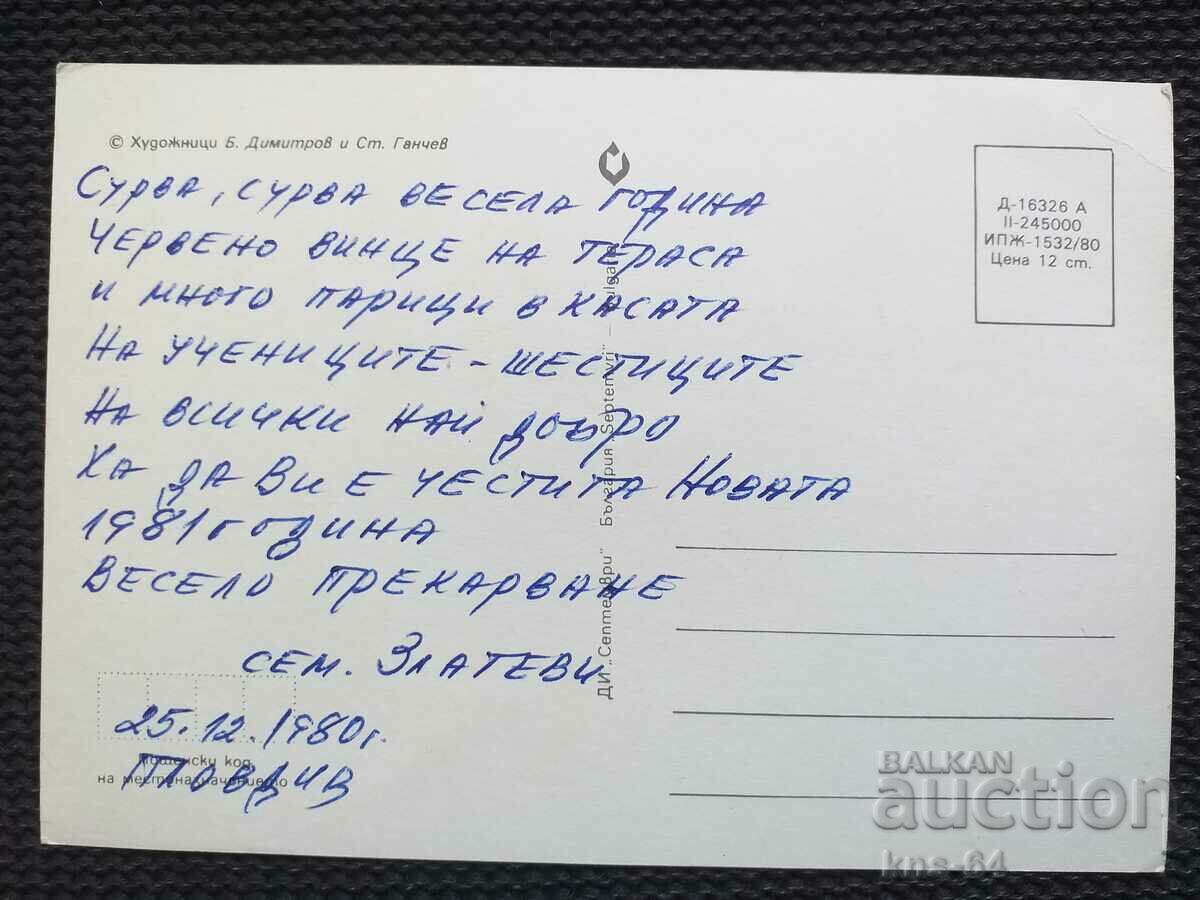 © Художници Б. Димитров и Ст. Ганчев
Сурва, сурва весела година
Червено винце на тераса
и много парици в касата
На учениците - шестиците
На всички най добро
Ха да Ви е честита Новата
1981 година
Весело прекарване
сем. Златеви
25.12.1980г.
Пловдив
пощенски код
на местоназначението
ДИ „Септември" България Septemvri" – Bulgaria
Д-16326 А
II-245000
ИПЖ-1532/80
Цена 12 ст.
BALKAN
auction
kns-64